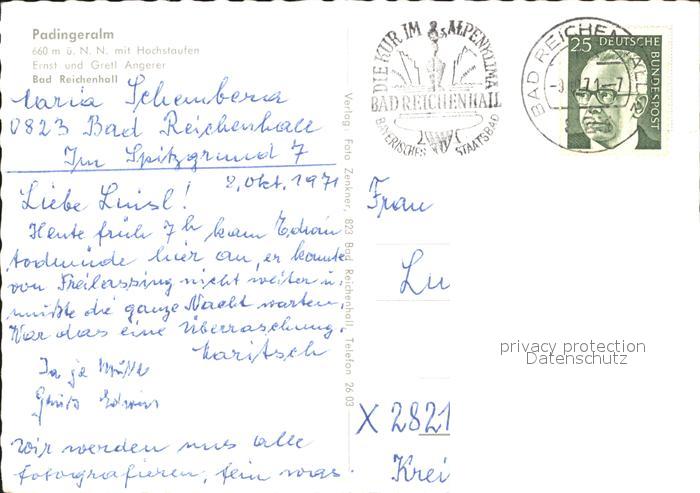 Padingeralm
660 m ü. N. N. mit Hochstaufen
Ernst und Gretl Angerer
Bad Reichenhall
Maria
0823 Bad Reichenhall
Im Spitzgrund 7
2. Okt. 1971
Liebe Luisl!
Heute früh 7h kam Edwin
todmüde hier an, er konnte
von Freilassing nicht weiter u.
mußte die ganze Nacht warten.
War das eine Überraschung.
Maritsch
Gruß Edwin
Wir werden uns alle
fotografieren, fein was.
Verlag: Foto Zenkner, 823 Bad Reichenhall, Telefon 26 03
DIE KUR IM ALPENKLIMA
BAD REICHENHALL
BAYERISCHES STAATSBAD
BAD REICHENHALL
25 DEUTSCHE BUNDESPOST
Frau
Lu
X 2821
Krei
privacy protection
Datenschutz